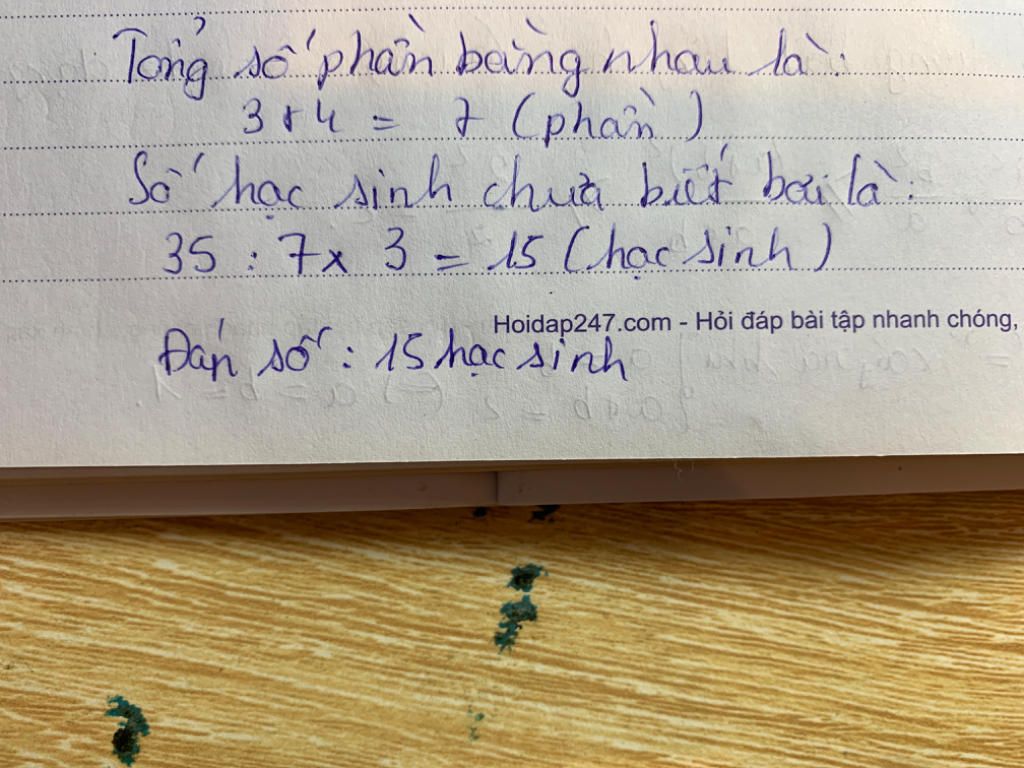 Tổng số phần bằng nhau là:
3 + 4 = 7 (phần)
Số học sinh chưa biết bơi là:
35 : 7 x 3 = 15 (học sinh)
Hoidap247.com - Hỏi đáp bài tập nhanh chóng,
Đáp số : 15 học sinh